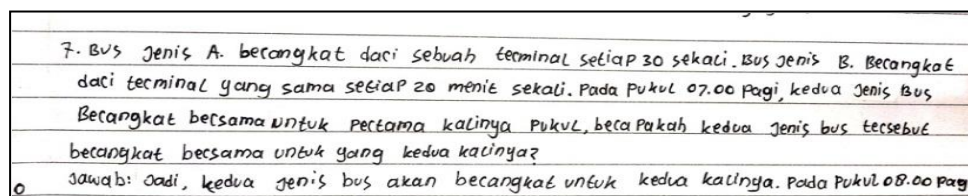 7. Bus Jenis A. berangkat dari sebuah terminal setiap 30 sekali. Bus Jenis B. Berangkat
dari terminal yang sama setiap 20 menit sekali. Pada Pukul 07.00 Pagi, kedua Jenis Bus
Berangkat bersama untuk Pertama kalinya Pukul, bera Pakah kedua Jenis bus tersebut
berangkat bersama untuk yang kedua kalinya?
Jawab: Jadi, kedua Jenis bus akan berangkat untuk kedua kalinya. Pada Pukul 08.00 Pag